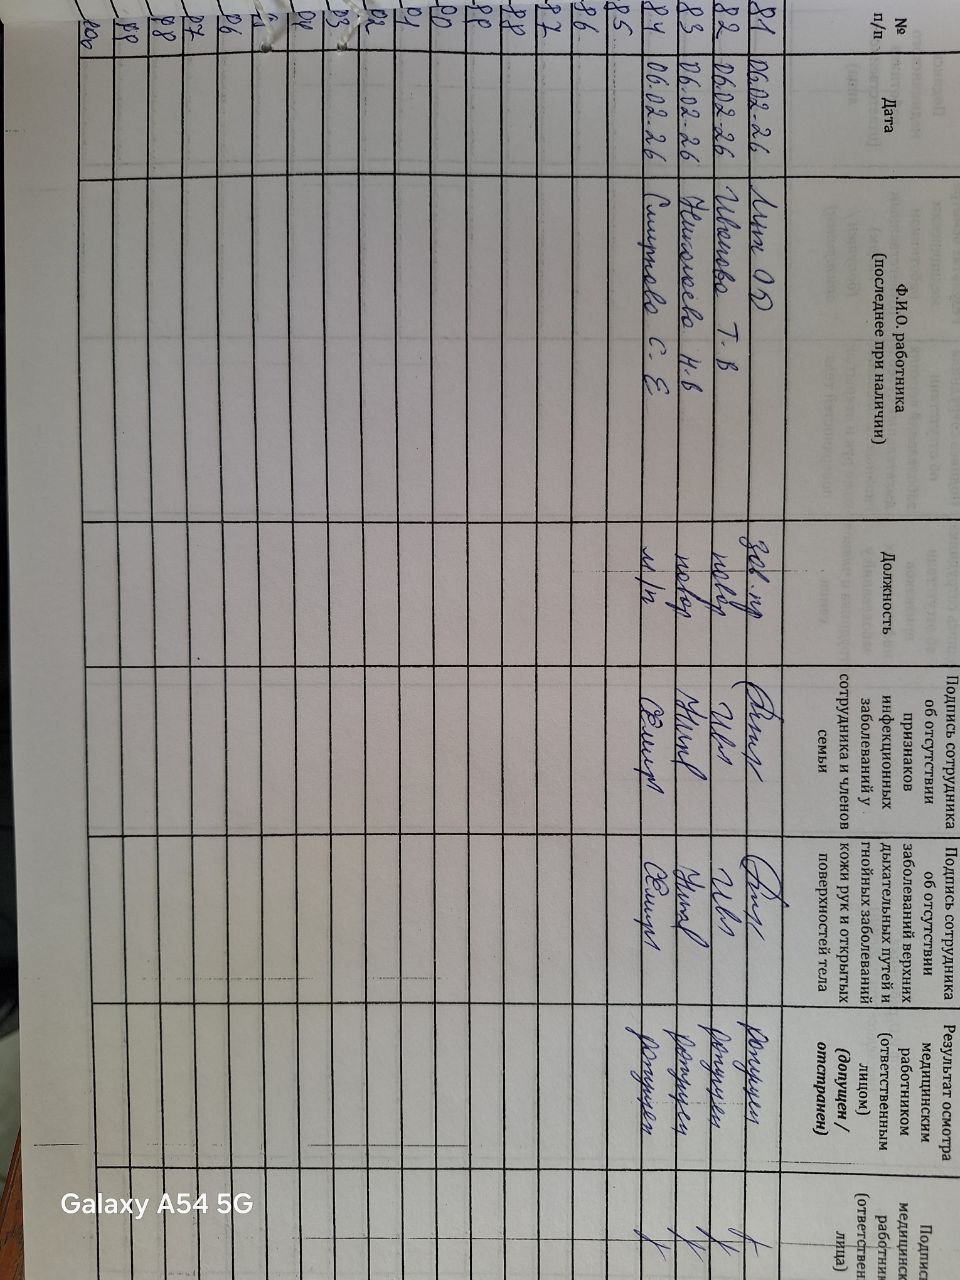 № п/п
Дата
Ф.И.О. работника
(последнее при наличии)
Должность
Подпись сотрудника
об отсутствии
признаков
инфекционных
заболеваний у
сотрудника и членов
семьи
Подпись сотрудника
об отсутствии
заболеваний верхних
дыхательных путей и
гнойных заболеваний
кожи рук и открытых
поверхностей тела
Результат осмотра
медицинским
работником
(ответственным
лицом)
(допущен /
отстранен)
81 06.02.26 зав.пр допущен
82 06.02.26 Иванова Т.В повар Ив допущен
83 06.02.26 Николаева Н.В повар допущен
84 06.02.26 Смирнова С.Е м/п допущен
85
86
87
88
89
90
91
92
93
94
96
97
98
99
100
Galaxy A54 5G